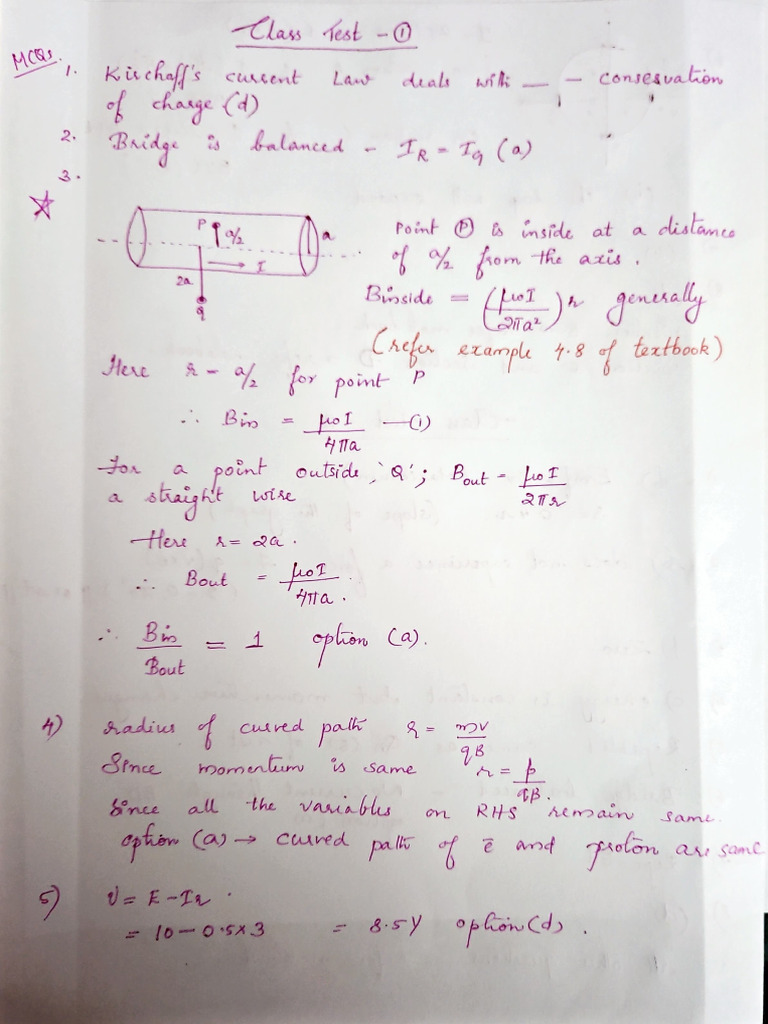 Class Test - ①
MCQs.
1. Kirchoff's current Law deals with — - conservation
of charge (d)
2. Bridge is balanced - I_R = I_g (a)
3.
☆
P
a/2
a
I
2a
Q
Point Ⓟ is inside at a distance
of a/2 from the axis.
Binside = (μ₀I/2πa²) r generally
(refer example 4.8 of textbook)
Here r - a/2 for point P
∴ Bin = μ₀I/4πa —(1)
For a point outside 'Q'; Bout = μ₀I/2πr
a straight wire
Here r = 2a.
∴ Bout = μ₀I/4πa.
∴ Bin/Bout = 1 option (a).
4) radius of curved path r = mv/qB
Since momentum is same r = p/qB.
Since all the variables on RHS remain same.
option (a) → curved path of e̅ and proton are same
5) V = E - Ir.
= 10 - 0.5×3 = 8.5V option (d).